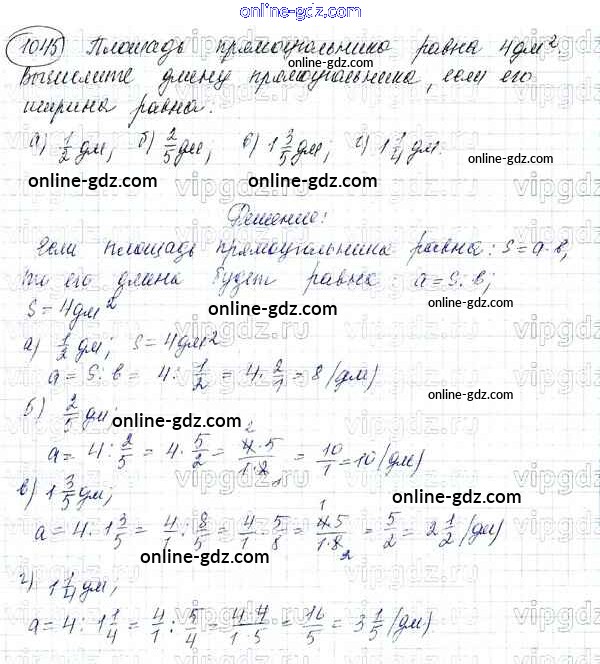 online-gdz.com
1045) Площадь прямоугольника равна 4 дм².
Вычислите длину прямоугольника, если его
ширина равна:
а) 1/2 дм; б) 2/5 дм; в) 1 3/5 дм; г) 1 1/4 дм.
online-gdz.com
online-gdz.com online-gdz.com
Решение:
Если площадь прямоугольника равна: S = a · b,
то его длина будет равна: a = S : b;
online-gdz.com
S = 4 дм²
online-gdz.com
а) 1/2 дм; S = 4 дм²
a = S : b = 4 : 1/2 = 4 · 2/1 = 8 (дм)
online-gdz.com
б) 2/5 дм;
online-gdz.com
a = 4 : 2/5 = 4 · 5/2 = 4·5/1·2 = 10/1 = 10 (дм)
в) 1 3/5 дм;
online-gdz.com
a = 4 : 1 3/5 = 4/1 : 8/5 = 4/1 · 5/8 = 4·5/1·8 = 5/2 = 2 1/2 (дм)
online-gdz.com
г) 1 1/4 дм;
online-gdz.com
a = 4 : 1 1/4 = 4/1 : 5/4 = 4·4/1·5 = 16/5 = 3 1/5 (дм).
online-gdz.com
vipgdz.ru